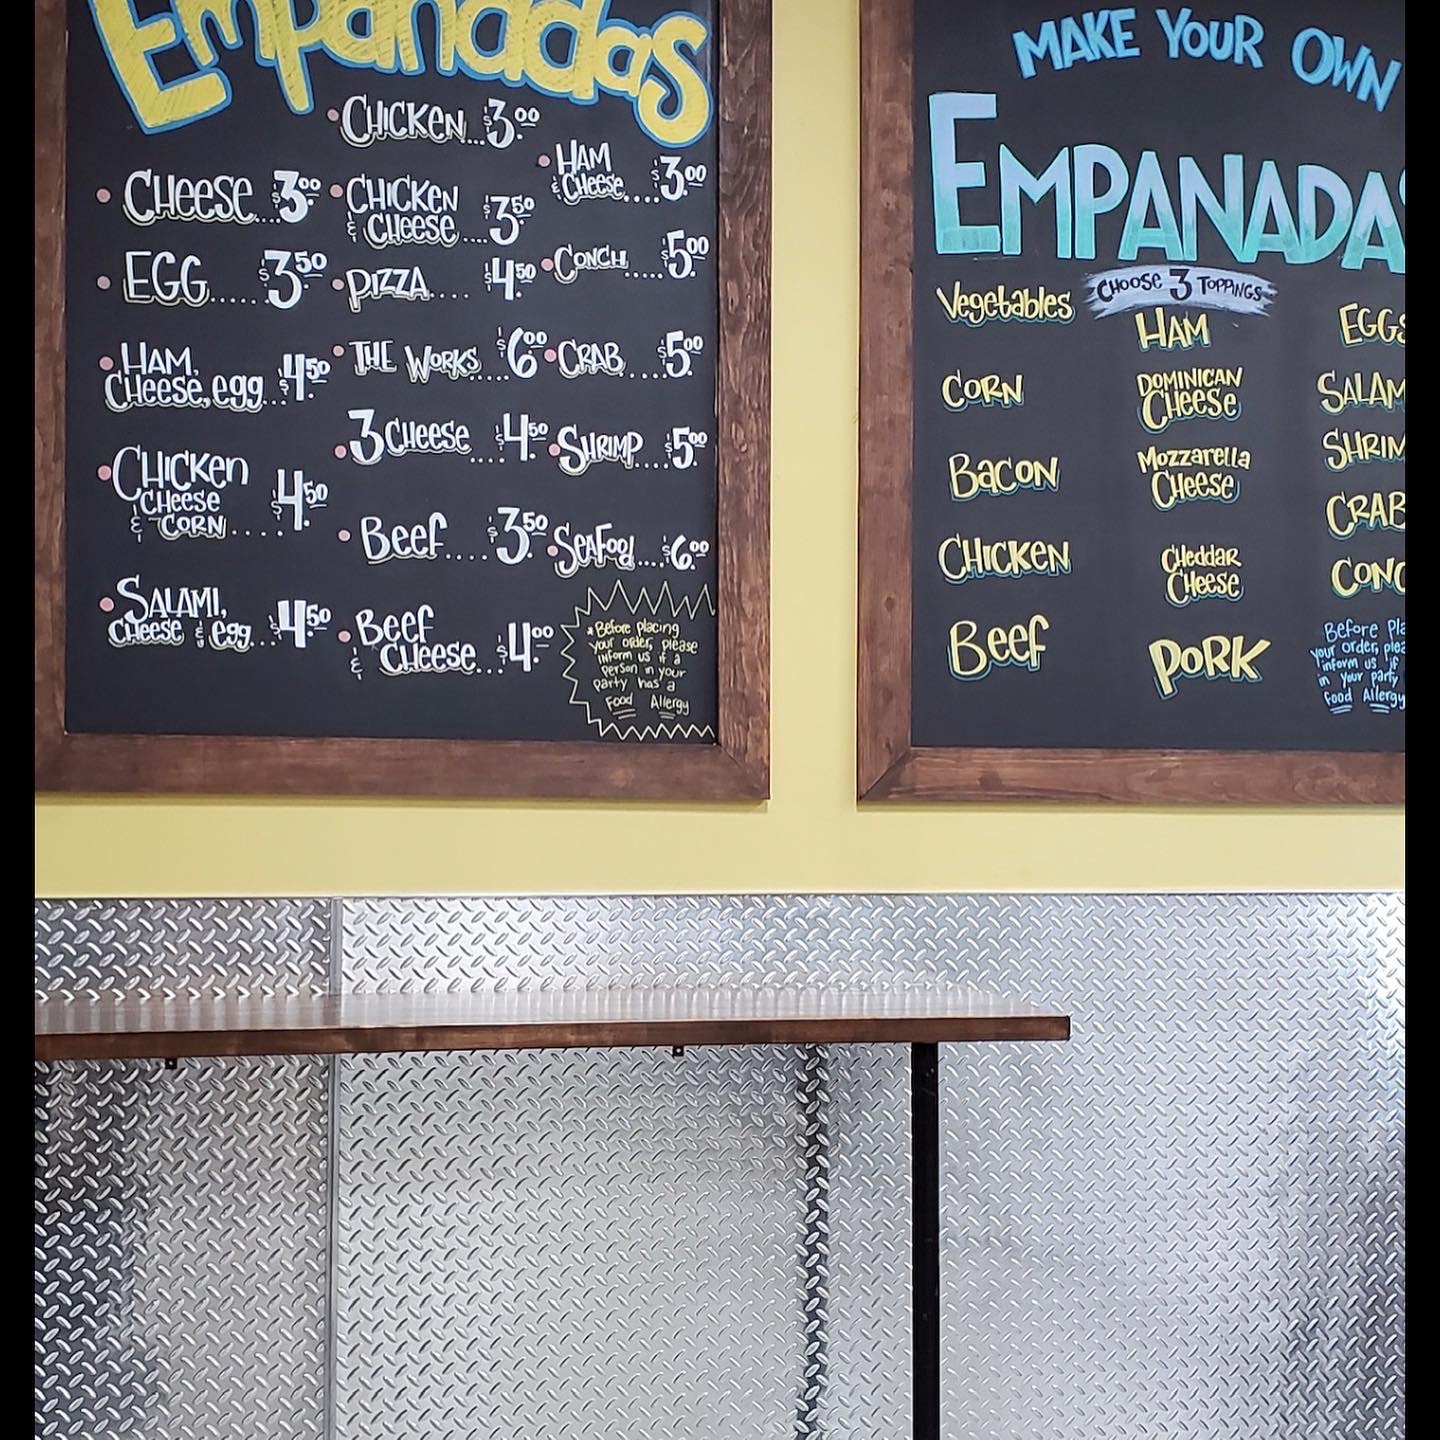 Empanadas
• CHEESE...$3.00
• EGG.....$3.50
• HAM,
CHEESE, egg...$4.50
• CHICKEN
CHEESE
& CORN....$4.50
• SALAMI,
CHEESE & egg...$4.50
• CHICKEN...$3.00
• CHICKEN
& CHEESE....$3.50
• PIZZA....$4.50
• THE WORKS....$6.00
• 3 CHEESE....$4.50
• Beef....$3.50
• Beef
& CHEESE...$4.00
• HAM
& CHEESE....$3.00
• CONCH.....$5.00
• CRAB.....$5.00
• SHRIMP....$5.00
• SEAFOOD...$6.00
* Before placing
your order, please
inform us if a
person in your
party has a
Food Allergy
MAKE YOUR OWN
EMPANADAS
CHOOSE 3 TOPPINGS
Vegetables
CORN
BACON
CHICKEN
Beef
HAM
DOMINICAN
CHEESE
Mozzarella
CHEESE
Cheddar
CHEESE
PORK
EGGS
SALAM
SHRIM
CRAB
CONC
Before Pla
your order, plea
inform us if
in your party
Food Allergy